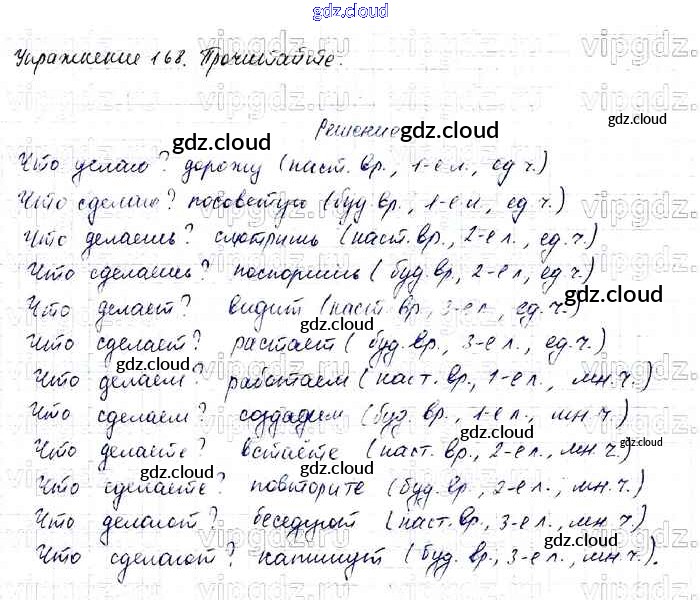 gdz.cloud
Упражнение 168. Прочитайте.
Решение
Что делаю? дорожу (наст. вр., 1-е л., ед. ч.)
Что сделаю? посоветую (буд. вр., 1-е л., ед. ч.)
Что делаешь? смотришь (наст. вр., 2-е л., ед. ч.)
Что сделаешь? поспоришь (буд. вр., 2-е л., ед. ч.)
Что делает? видит (наст. вр., 3-е л., ед. ч.)
Что сделает? растает (буд. вр., 3-е л., ед. ч.)
Что делаем? работаем (наст. вр., 1-е л., мн. ч.)
Что сделаем? создадим (буд. вр., 1-е л., мн. ч.)
Что делаете? встаёте (наст. вр., 2-е л., мн. ч.)
Что сделаете? повторите (буд. вр., 2-е л., мн. ч.)
Что делают? беседуют (наст. вр., 3-е л., мн. ч.)
Что сделают? напишут (буд. вр., 3-е л., мн. ч.).